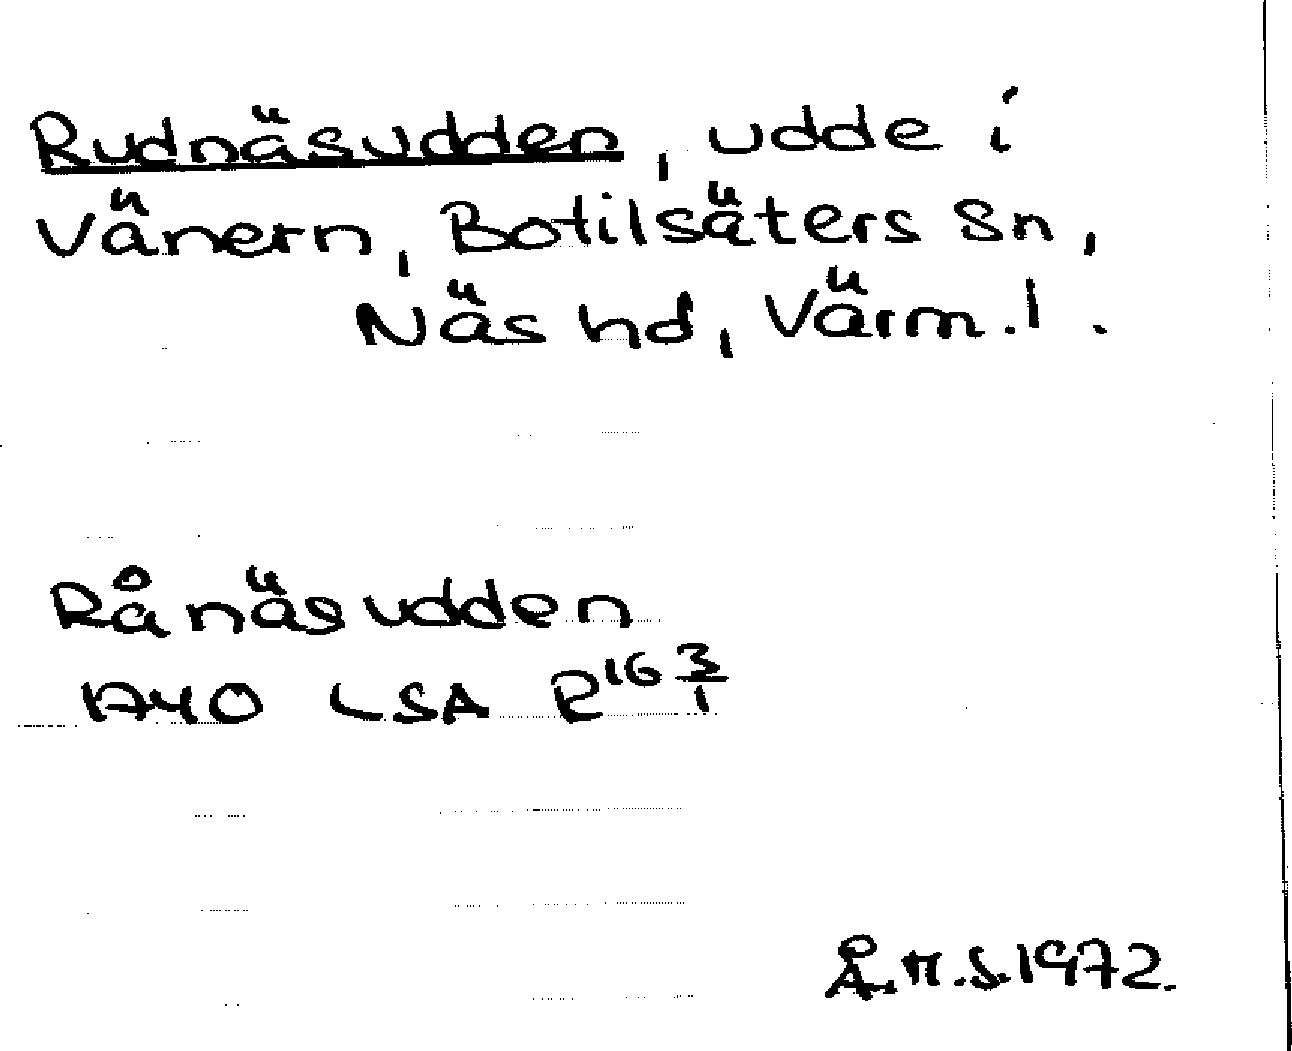 Rudnäsudden, udde i
Vänern, Botilsäters Sn,
Näs hd, Värm.l.
Rånäsudden
1740 LSA R16 3/1
Å.H.S.1972.